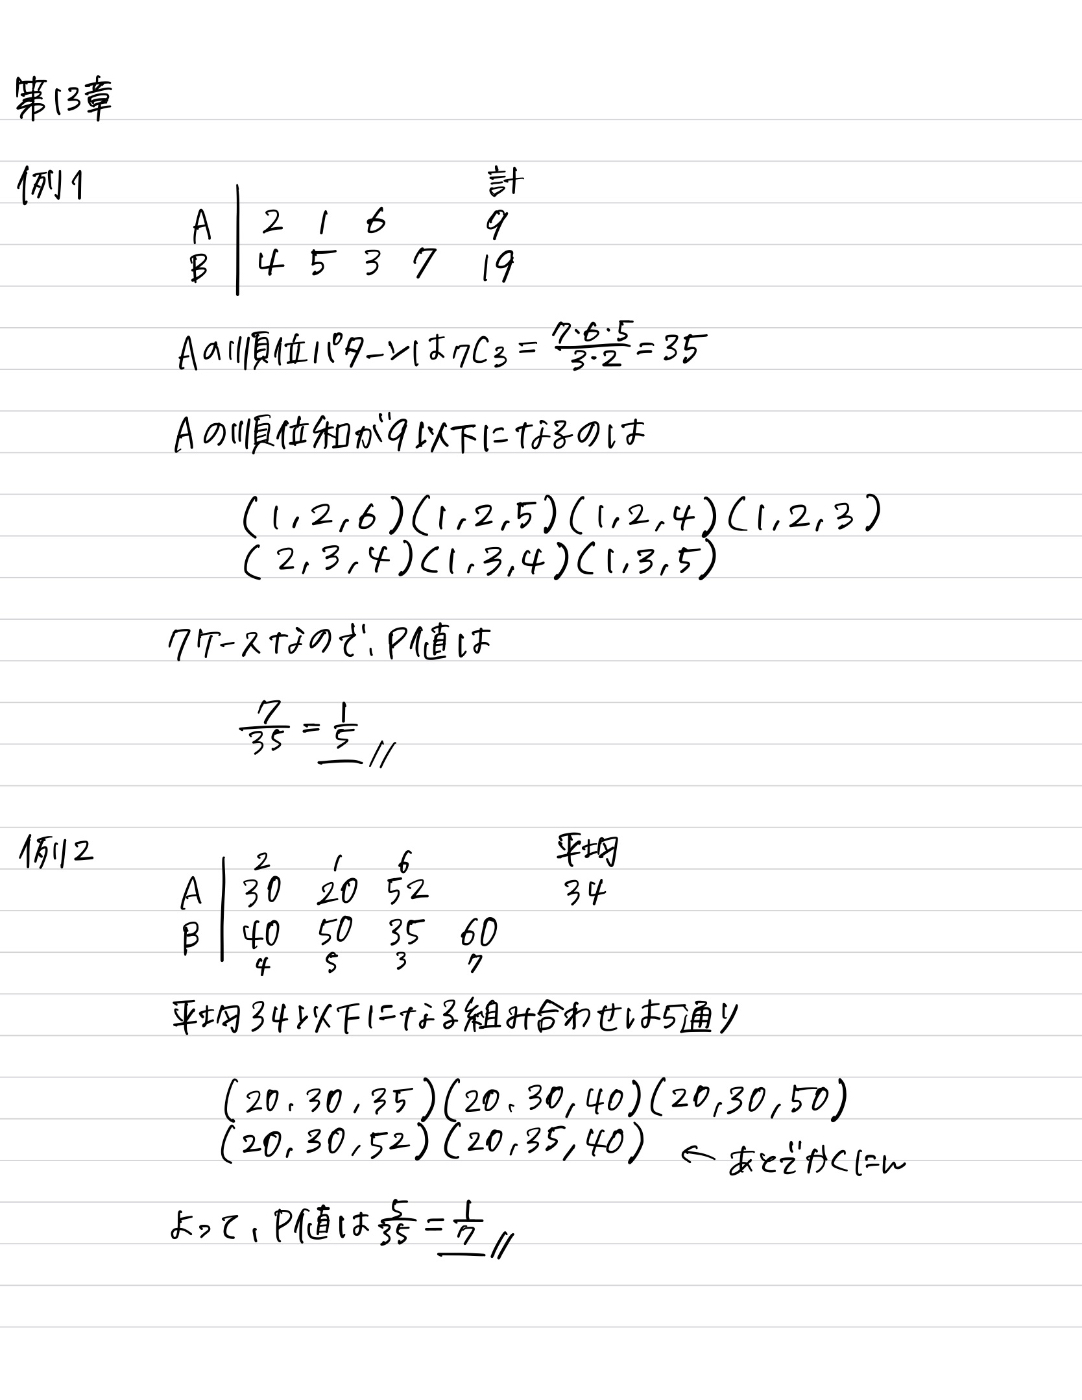 第13章
例1
計
A 2 1 6 9
B 4 5 3 7 19
Aの順位パターンは ₇C₃ = 7・6・5/3・2 = 35
Aの順位和が9以下になるのは
(1,2,6)(1,2,5)(1,2,4)(1,2,3)
(2,3,4)(1,3,4)(1,3,5)
7ケースなので、P値は
7/35 = 1/5 //
例2
2 1 6 平均
A 30 20 52 34
B 40 50 35 60
4 5 3 7
平均34以下になる組み合わせは5通り
(20.30,35)(20.30,40)(20,30,50)
(20,30,52)(20,35,40) ← あとでかくにん
よって、P値は 5/35 = 1/7 //